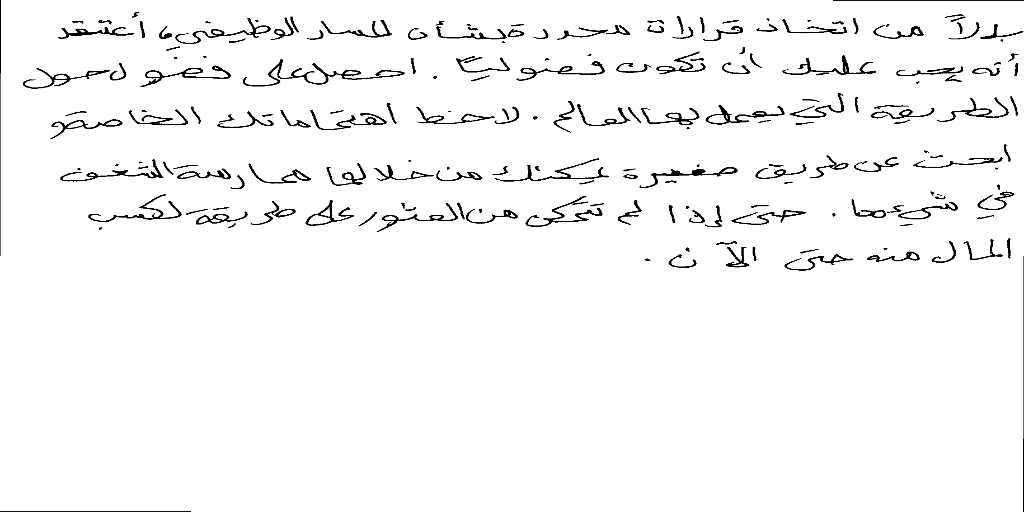 بدلاً من اتخاذ قرارات محددة بشأن المسار الوظيفي، أعتقد
أنه يجب عليك أن تكون فضوليًا. احصل على فضول حول
الطريقة التي يعمل بها العالم. لاحظ اهتماماتك الخاصة و
ابحث عن طريق صغيرة يمكنك من خلالها ممارسة الشغف
في شيء ما. حتى إذا لم تتمكن من العثور على طريقة لكسب
المال منه حتى الآن.